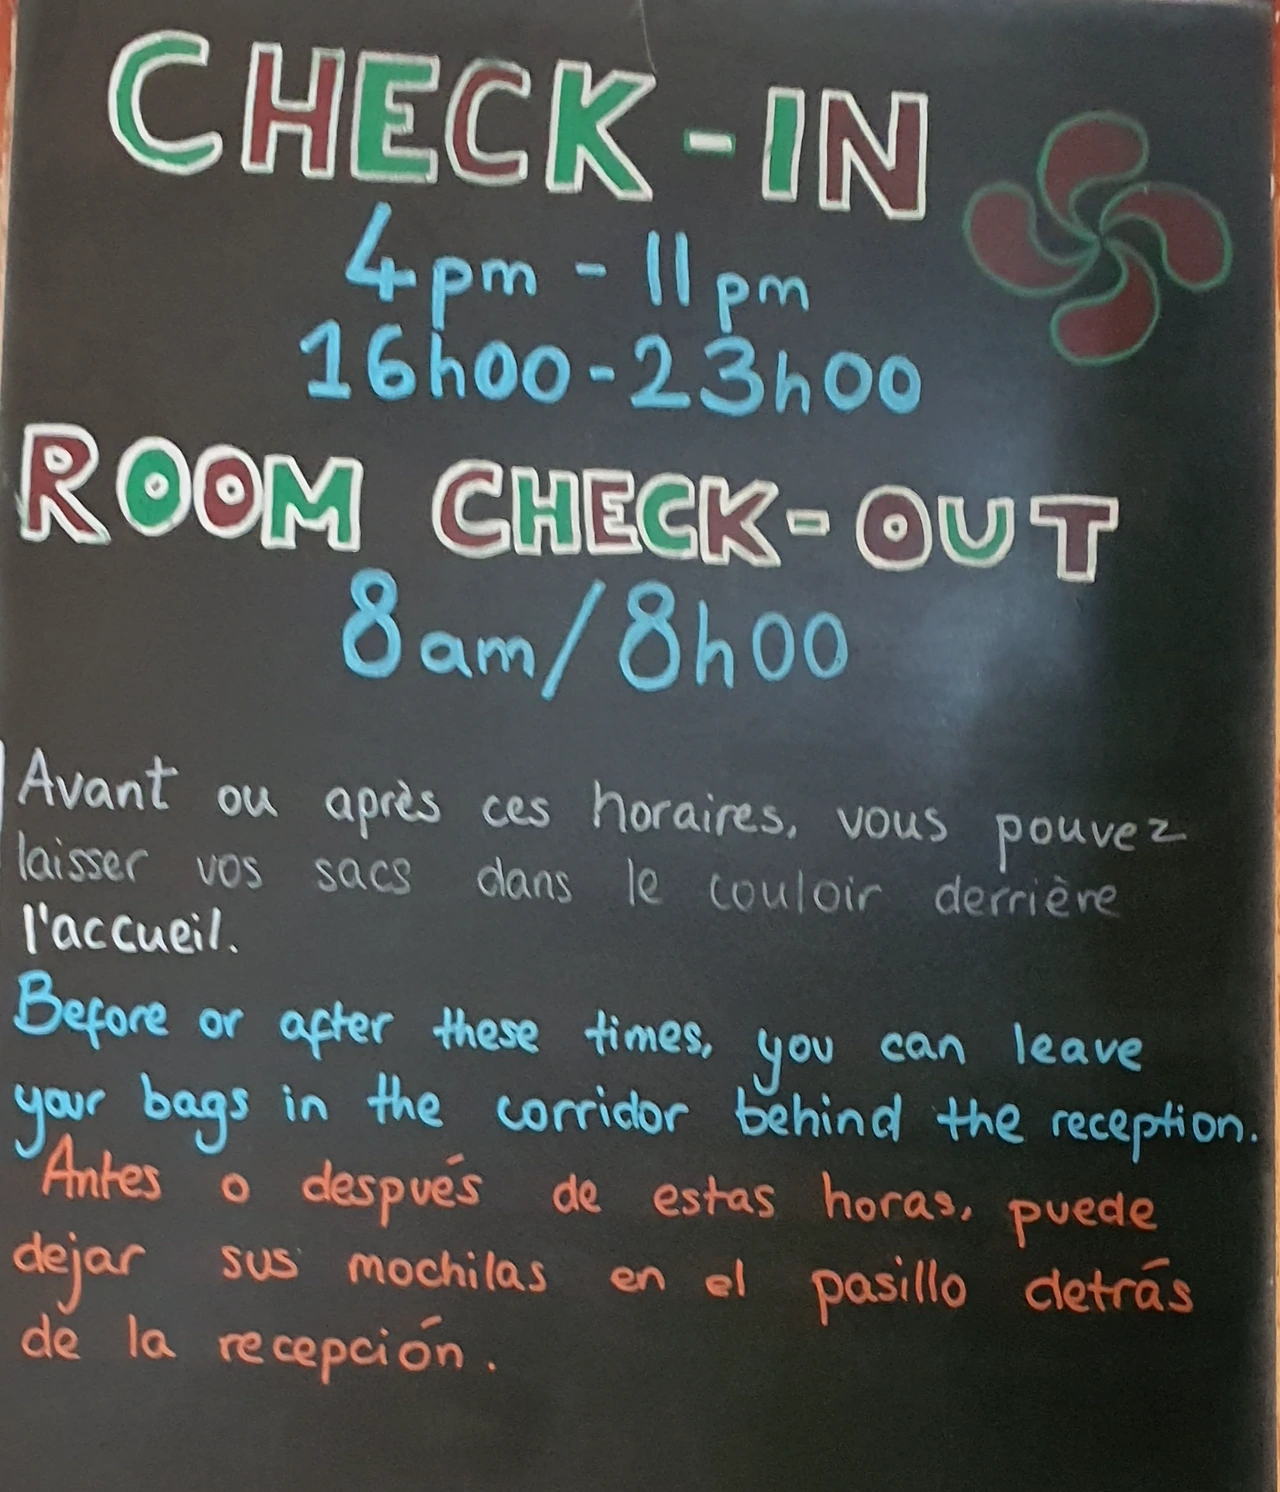 CHECK-IN
4pm - 11pm
16h00 - 23h00
ROOM CHECK-OUT
8am/8h00
Avant ou après ces horaires, vous pouvez
laisser vos sacs dans le couloir derrière
l'accueil.
Before or after these times, you can leave
your bags in the corridor behind the reception.
Antes o después de estas horas, puede
dejar sus mochilas en el pasillo detrás
de la recepción.